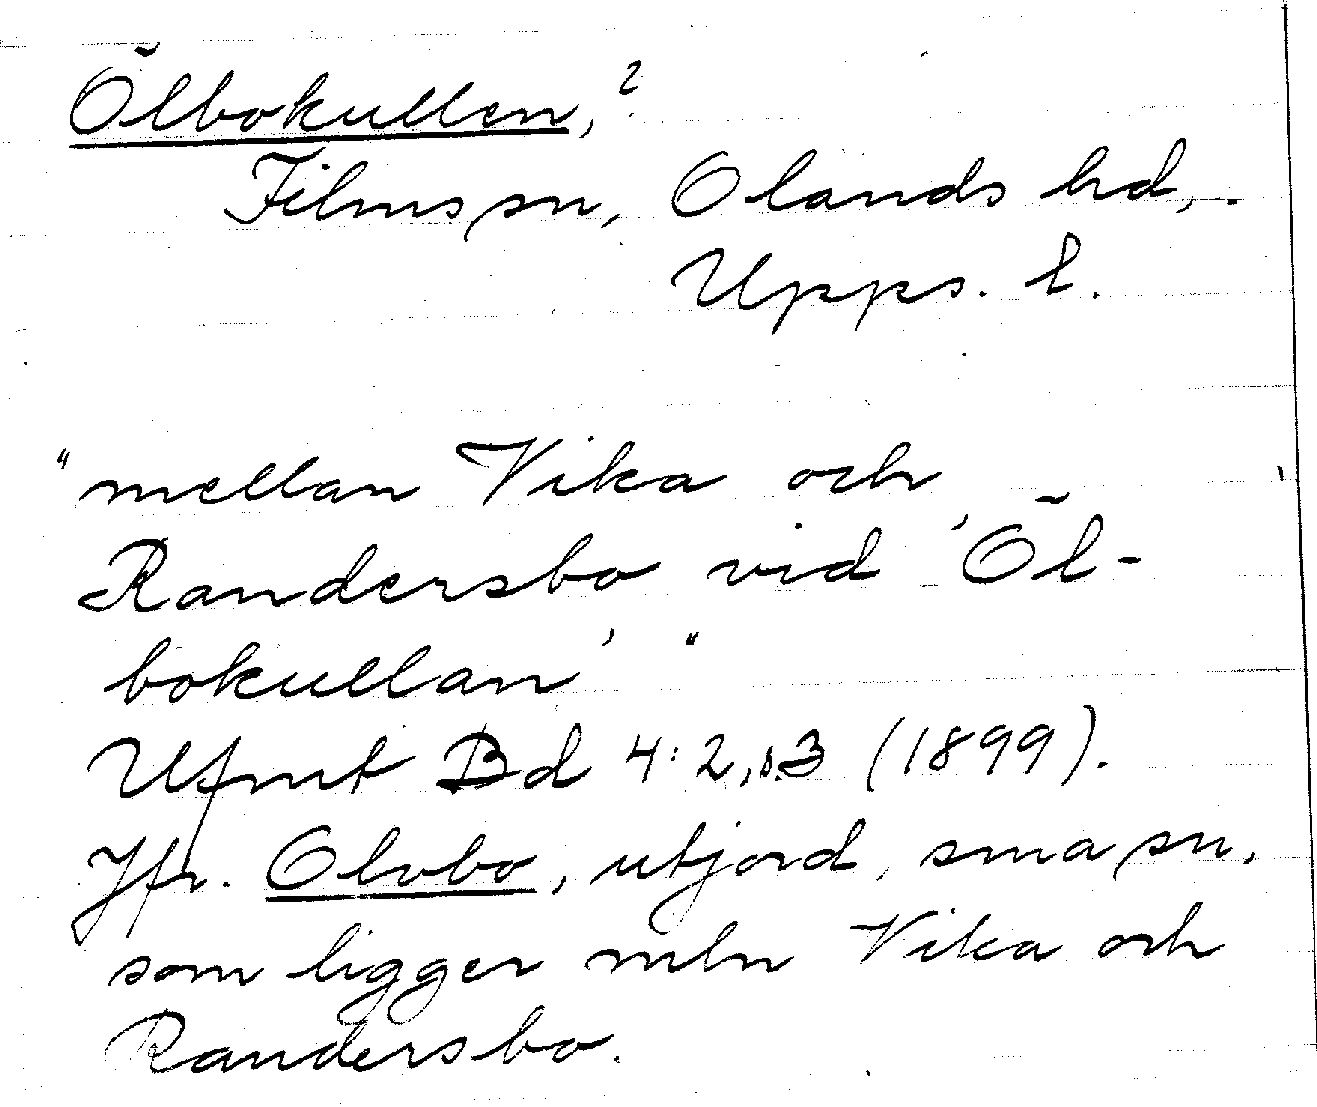 Ölbokullen, ?
Films sn, Olands hd,
Upps. l.
"mellan Vika och
Randersbo vid 'Öl-
bokullan' "
Ufmt Bd 4:2, s. 3 (1899).
Jfr. Olvbo, utjord, sma sn,
som ligger mln Vika och
Randersbo.